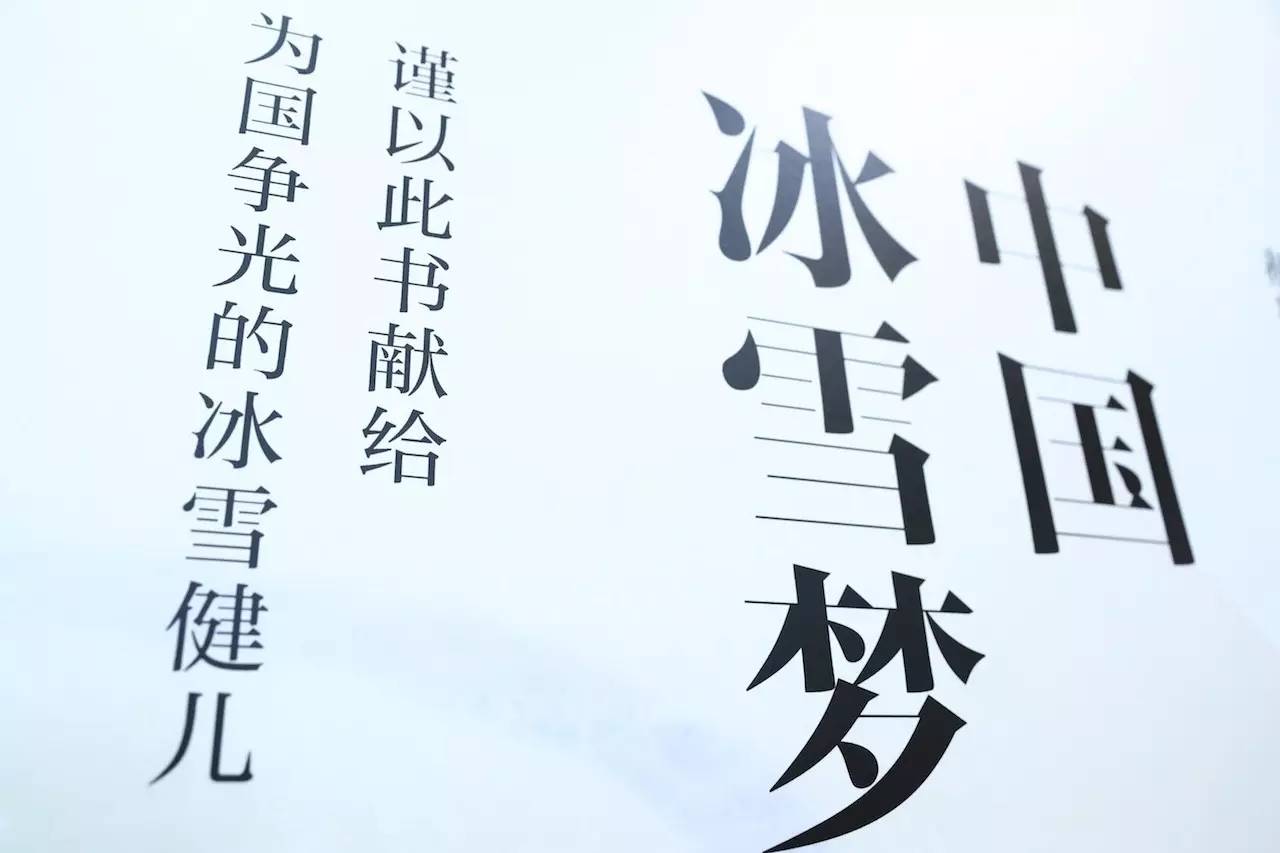 中国
冰雪梦
谨以此书献给
为国争光的冰雪健儿